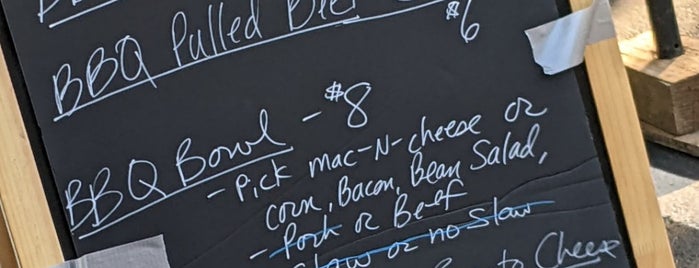 BBQ Pulled Beef $6
BBQ Bowl - $8
- Pick mac-N-cheese or
corn, Bacon, Bean Salad,
- Pork or Beef
Slaw or no Slaw
to Cheese